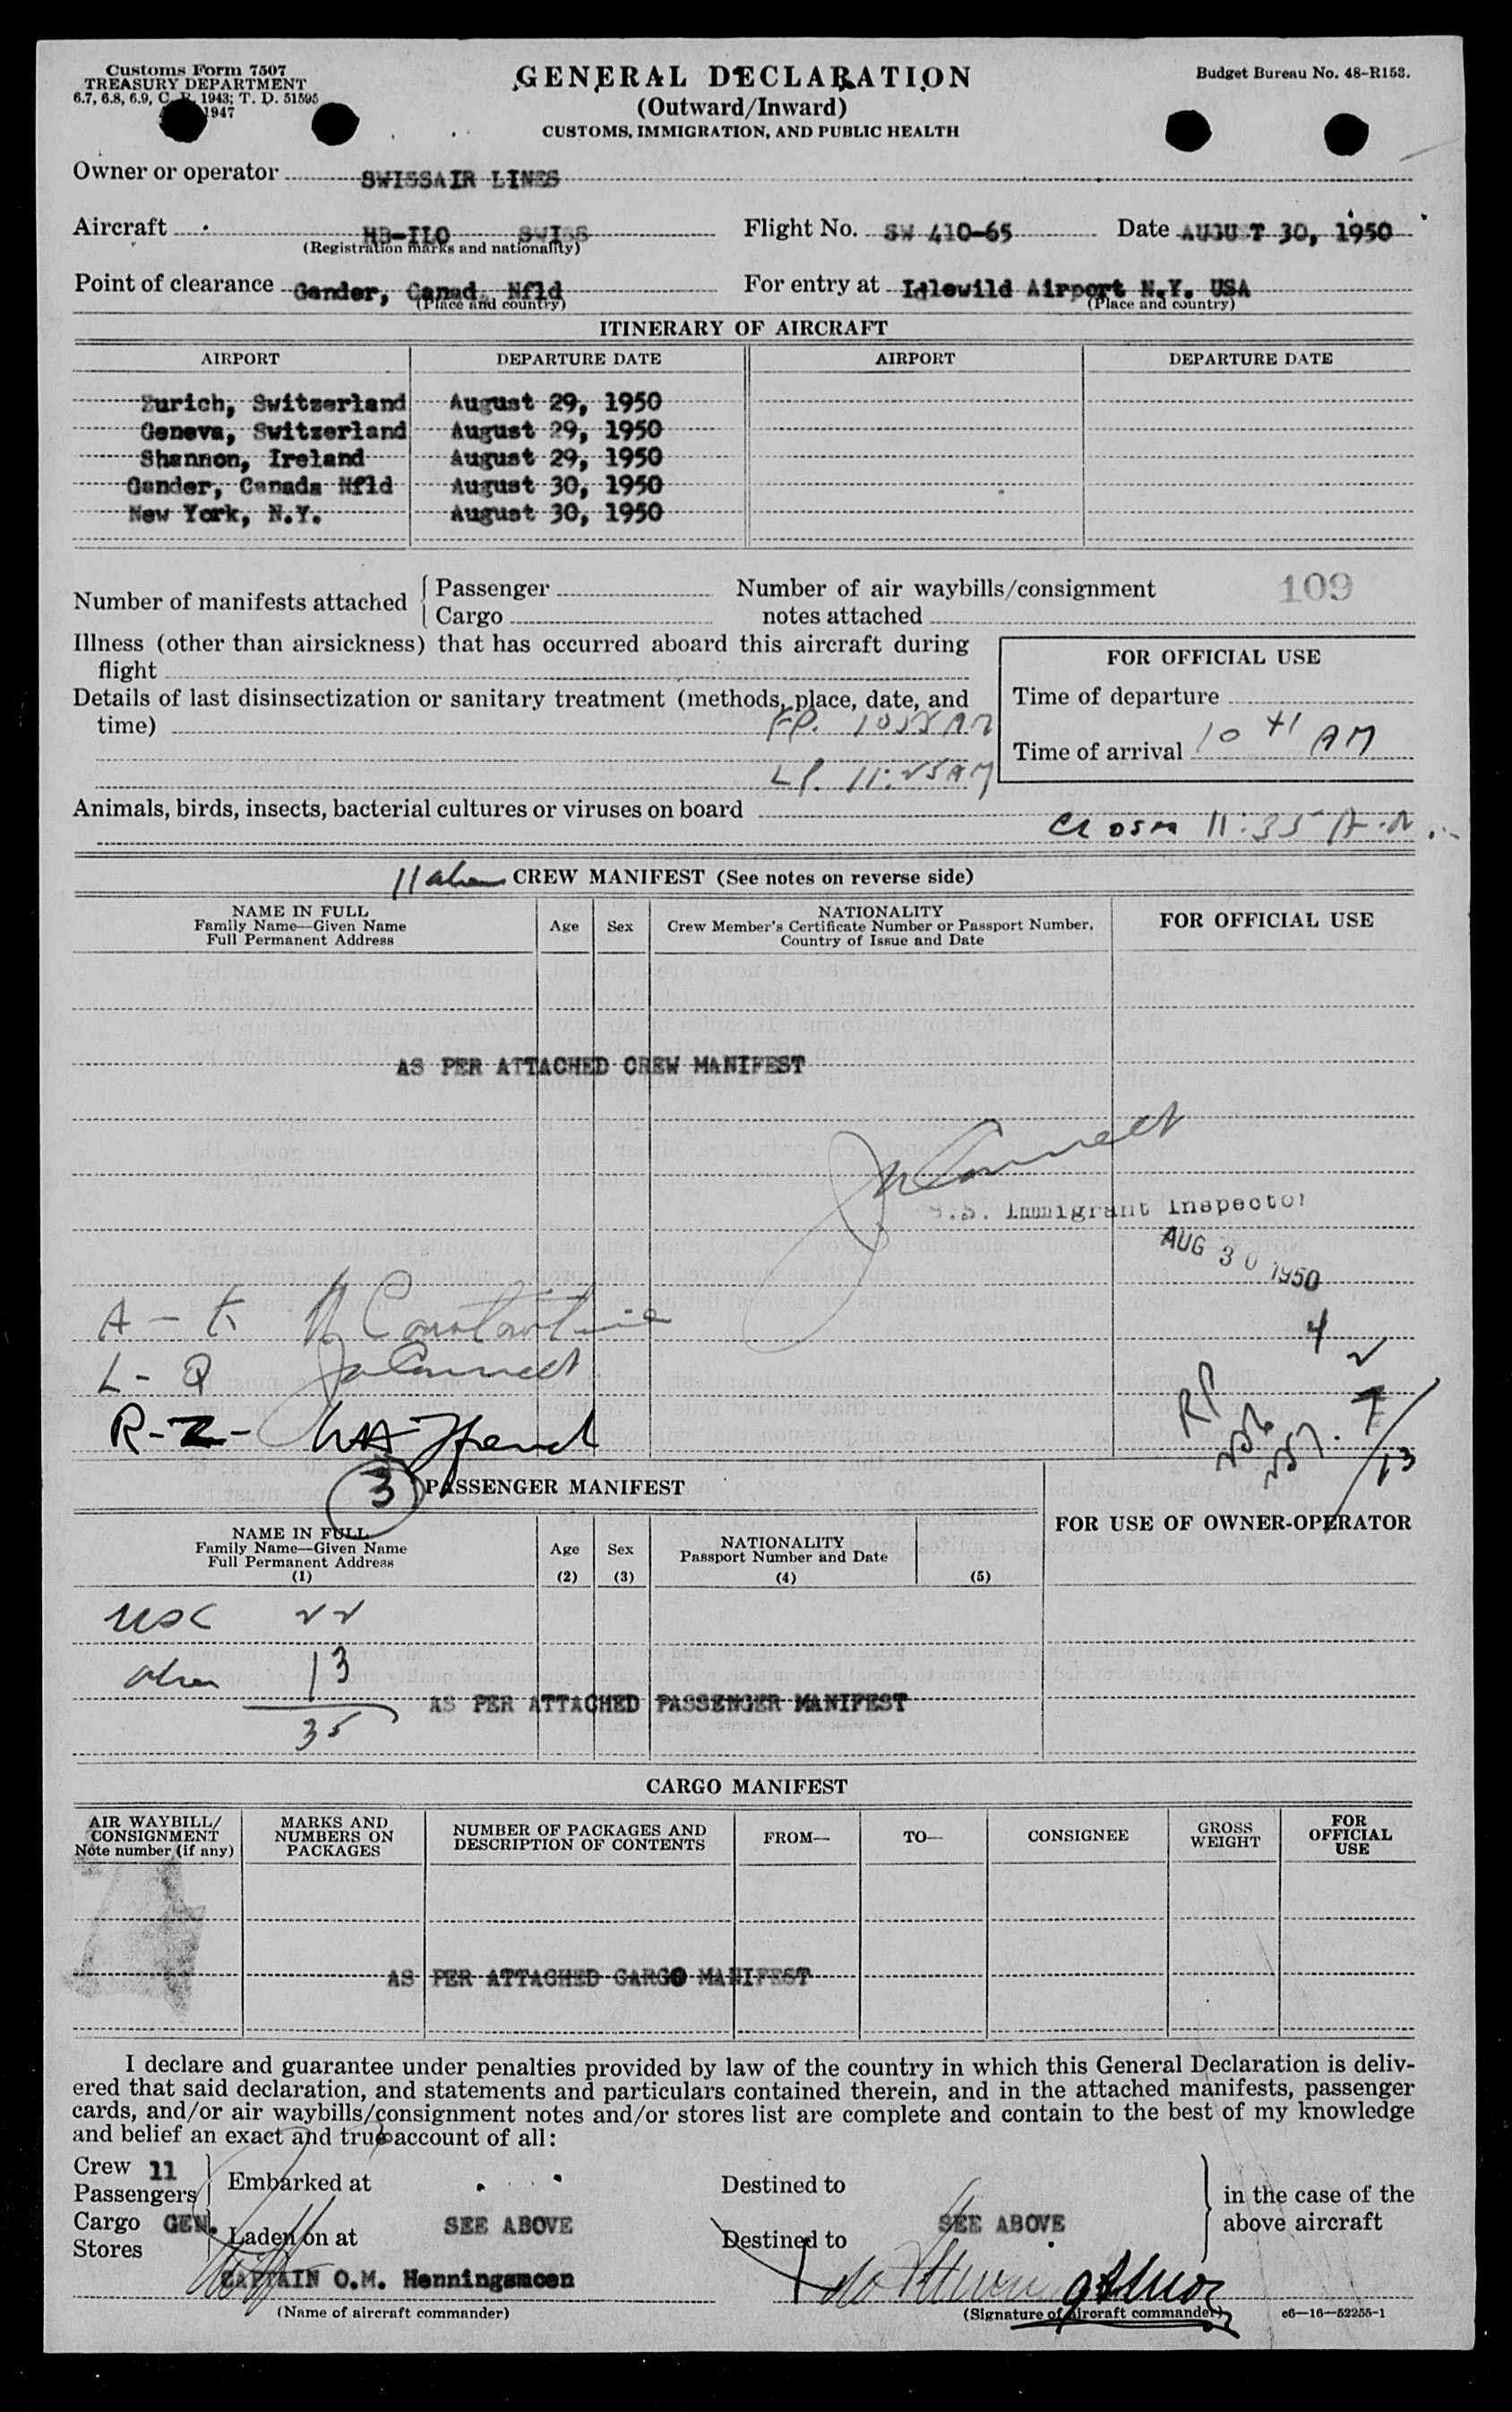 Customs Form 7507
TREASURY DEPARTMENT
6.7, 6.8, 6.9, C. R. 1943; T. D. 51595
1947
GENERAL DECLARATION
(Outward/Inward)
CUSTOMS, IMMIGRATION, AND PUBLIC HEALTH
Budget Bureau No. 48-R153.
Owner or operator SWISSAIR LINES
Aircraft HB-ILO SWISS
(Registration marks and nationality)
Flight No. SW 410-65 Date AUGUST 30, 1950
Point of clearance Gander, Canad. Nfld
(Place and country)
For entry at Idlewild Airport N.Y. USA
(Place and country)
ITINERARY OF AIRCRAFT
AIRPORT DEPARTURE DATE AIRPORT DEPARTURE DATE
Zurich, Switzerland August 29, 1950
Geneva, Switzerland August 29, 1950
Shannon, Ireland August 29, 1950
Gander, Canada Nfld August 30, 1950
New York, N.Y. August 30, 1950
Number of manifests attached { Passenger
Cargo
Number of air waybills/consignment
notes attached
109
Illness (other than airsickness) that has occurred aboard this aircraft during
flight
Details of last disinsectization or sanitary treatment (methods, place, date, and
time)
FOR OFFICIAL USE
Time of departure
Time of arrival 10 41 AM
11:25 AM
Animals, birds, insects, bacterial cultures or viruses on board
11:35 A.M.
11 CREW MANIFEST (See notes on reverse side)
NAME IN FULL
Family Name—Given Name
Full Permanent Address
Age
Sex
NATIONALITY
Crew Member's Certificate Number or Passport Number,
Country of Issue and Date
FOR OFFICIAL USE
AS PER ATTACHED CREW MANIFEST
U.S. Immigrant Inspector
AUG 30 1950
A - K
4
L - Q
R-Z-
RP
7
13
3
PASSENGER MANIFEST
NAME IN FULL
Family Name—Given Name
Full Permanent Address
(1)
Age
(2)
Sex
(3)
NATIONALITY
Passport Number and Date
(4)
(5)
FOR USE OF OWNER-OPERATOR
USC 22
13
35
AS PER ATTACHED PASSENGER MANIFEST
CARGO MANIFEST
AIR WAYBILL/
CONSIGNMENT
Note number (if any)
MARKS AND
NUMBERS ON
PACKAGES
NUMBER OF PACKAGES AND
DESCRIPTION OF CONTENTS
FROM—
TO—
CONSIGNEE
GROSS
WEIGHT
FOR
OFFICIAL
USE
AS PER ATTACHED CARGO MANIFEST
I declare and guarantee under penalties provided by law of the country in which this General Declaration is deliv-
ered that said declaration, and statements and particulars contained therein, and in the attached manifests, passenger
cards, and/or air waybills/consignment notes and/or stores list are complete and contain to the best of my knowledge
and belief an exact and true account of all:
Crew 11
Passengers
Cargo GEN.
Stores
Embarked at
Laden on at SEE ABOVE
Destined to
Destined to SEE ABOVE
in the case of the
above aircraft
CAPTAIN O.M. Henningsmoen
(Name of aircraft commander)
(Signature of aircraft commander)
c6—16—52255-1